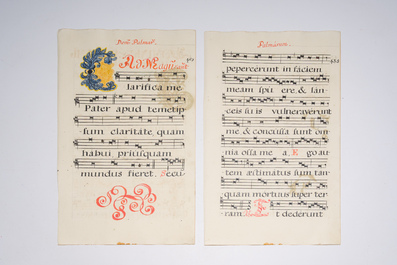 Domi Palmar.
Ad Magnificat
C
larifica me
Pater apud temetip
sum claritate, quam
habui priusquam
mundus fieret. Secu
Palmarum.
pepercerunt in faciem
meam spu ere, & lan
ceis su is vulneraverunt
me & concussa sunt om
nia ossa me a. E go au
tem æstimatus sum tan
quam mortuus super ter
ram t dederunt